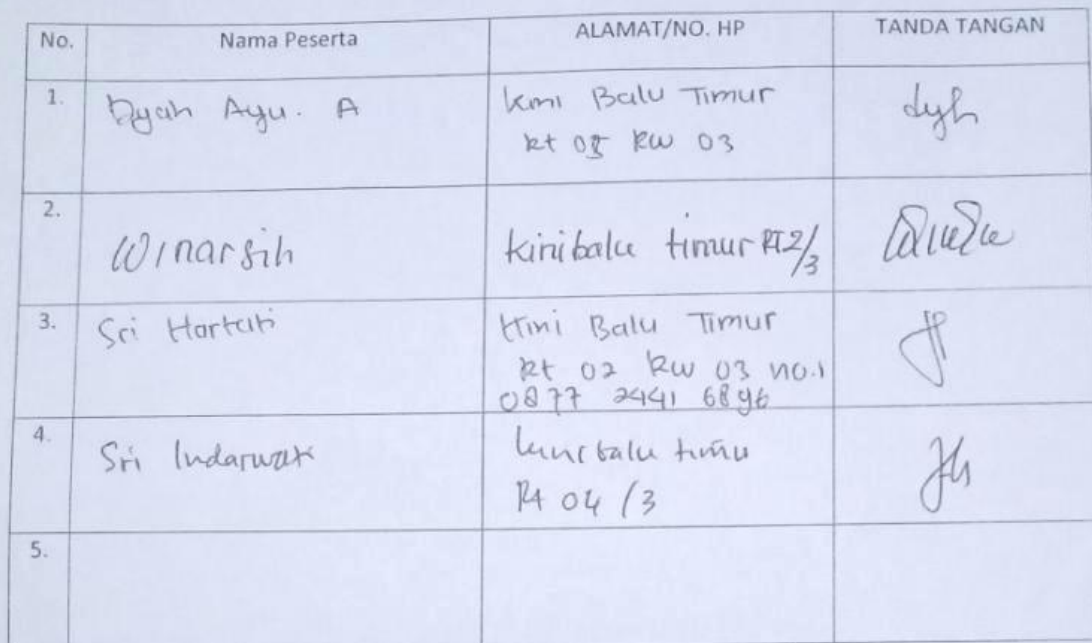 No. Nama Peserta ALAMAT/NO. HP TANDA TANGAN
1. Dyah Ayu. A Kini Balu Timur dyh
Rt 05 RW 03
2. Winarsih Kinibalu timur RT2/3
3. Sri Hartati Kini Balu Timur
Rt 02 RW 03 no.1
0877 2441 6896
4. Sri Indarwati kinibalu timur
Rt 04 /3
5.